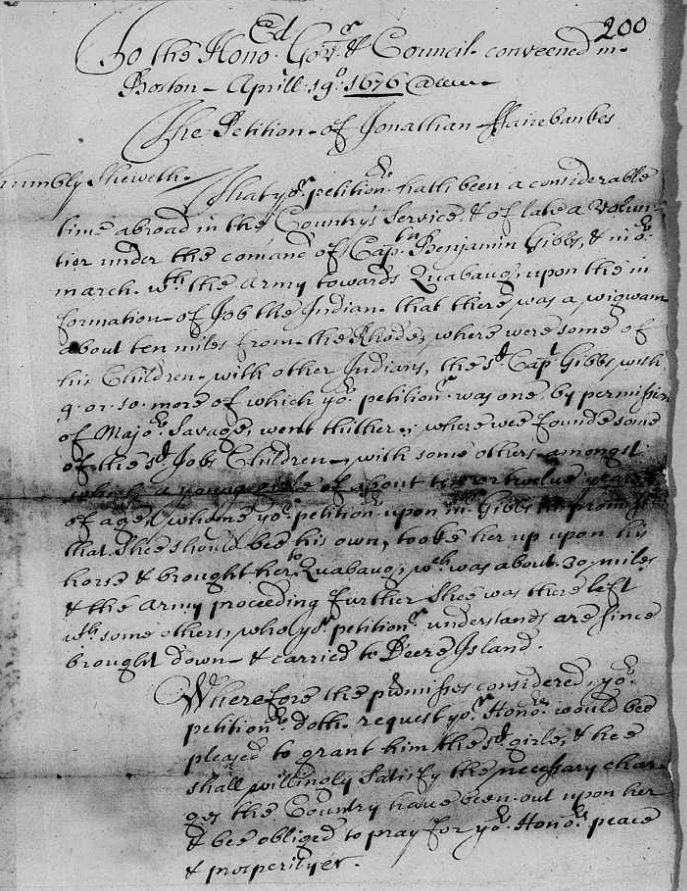 200
To the Hono.Ed Gov.r & Council convened in
Boston Aprill 19.o 1676
The Petition of Jonathan ffairebankes
humbly Sheweth.
That yo.r petition.r hath been a considerable
time abroad in the Countrys Service, & of late a Volun-
tier under the comand of Cap.tn Benjamin Gibbs, & in o.r
march w.th the Army towards Quabaug, upon the in
formation of Job the Indian that there was a wigwam
about ten miles from the Rhode, where were some of
his Children with other Indians, the s.d Cap.t Gibbs with
9. or. 10. more of which yo.r petition.r was one, by permission
of Majo.r Savage, went thither, where wee founde some
of the s.d Jobs Children, with some others amongst
which a young girle of about ten or twelve yeares
of age, whome yo.r petition.r upon Gibbs promise
that Shee should bee his own, tooke her up upon his
horse & brought her to Quabaug, w.ch was about 30 miles
& the Army proceeding further Shee was there left
w.th some others, who yo.r petition.r understands are since
brought down & carried to Deere Island.
Wherefore the p.rmisses considered, yo.r
petition.r doth request yo.r Hono.rs would bee
pleased to grant him the s.d girle, & hee
shall willingly Satisfy the necessary char-
ges the Country have been out upon her
& bee obliged to pray for yo.r Hono.rs peace
& prosperity &c.